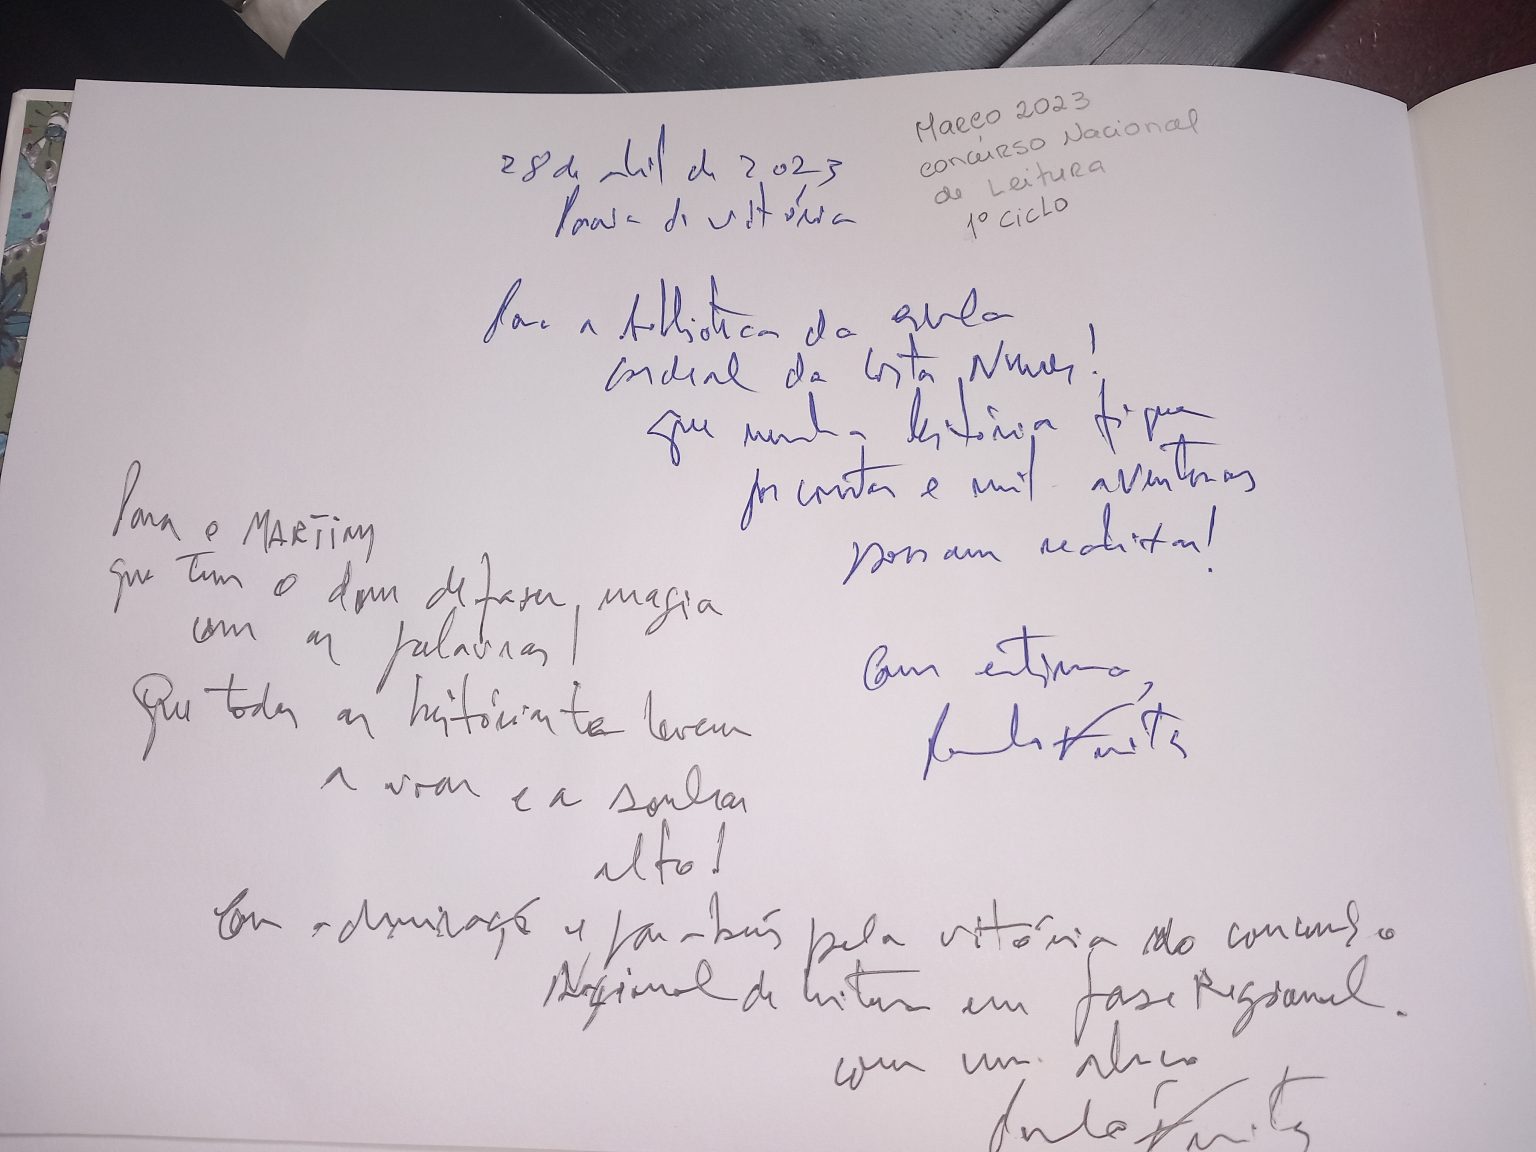 Março 2023
concurso Nacional
de Leitura
1º ciclo
28 de abril de 2023
Praia da vitória
Para a biblioteca da escola
Cardeal da Costa Nunes!
que nenhuma história fique
por contar e mil aventuras
possam realizar!
Com estima,
Para o MARTIM
que tem o dom de fazer magia
com as palavras!
Que todas as histórias te levem
a voar e a sonhar
alto!
Com admiração e parabéns pela vitória do concurso
Nacional de leitura em fase Regional.
com um abraço